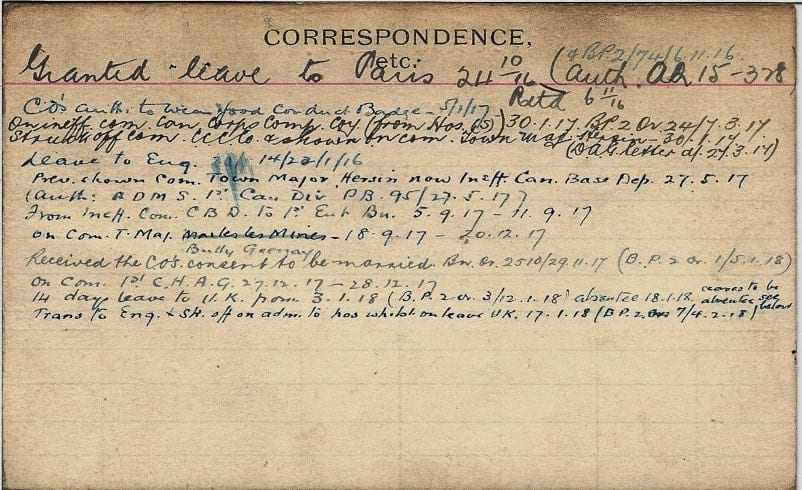 CORRESPONDENCE,
etc.
& B.P. 2/74/6.11.16
Granted leave to Paris 24 10/16 (Auth. 15-328)
Retd 6 11/16
C.O's auth: to wear Good Conduct Badge - 5/1/17
On ineff. com. Can Corps Comp. Coy (from Hos.) 30.1.17. B.P. 2 Or. 24/7.3.17
Struck off com. & shown on com. Town Maj. Hersin 30.1.17.
(D.A.G. letter d/. 27.3.17)
Leave to Eng. 14/23/1/16
Prev. shown Com. Town Major, Hersin now Ineff Can. Base Dep. 27.5.17
(Auth: A D M S. 1st Can Div P.B. 95/27.5.17)
From Ineff. Com. C B D. to 1st Ent Bn. 5.9.17 - 11.9.17
on Com. T. Maj. Marles les Mines - 18.9.17 - 20.12.17
Bully Grenay
Received the C.O's. consent to be married. Bn. Or. 2510/29.11.17 (B.P. 2 Or 1/5.1.18)
on Com. 1st C.H.A.G. 27.12.17 - 28.12.17
14 days leave to U.K. from 3.1.18 (B.P. 2 Or. 3/12.1.18) absentee 18.1.18. ceases to be absentee see below
Trans to Eng. & SH. off on adm. to hos whilst on leave U.K. 17.1.18 (B.P. 2 7/4.2.18)